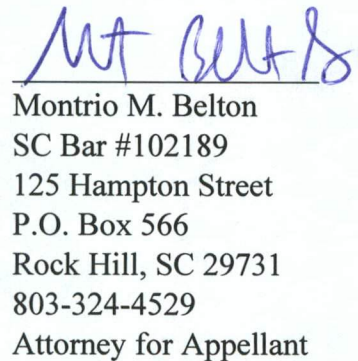 Mt Belt
Montrio M. Belton
SC Bar #102189
125 Hampton Street
P.O. Box 566
Rock Hill, SC 29731
803-324-4529
Attorney for Appellant